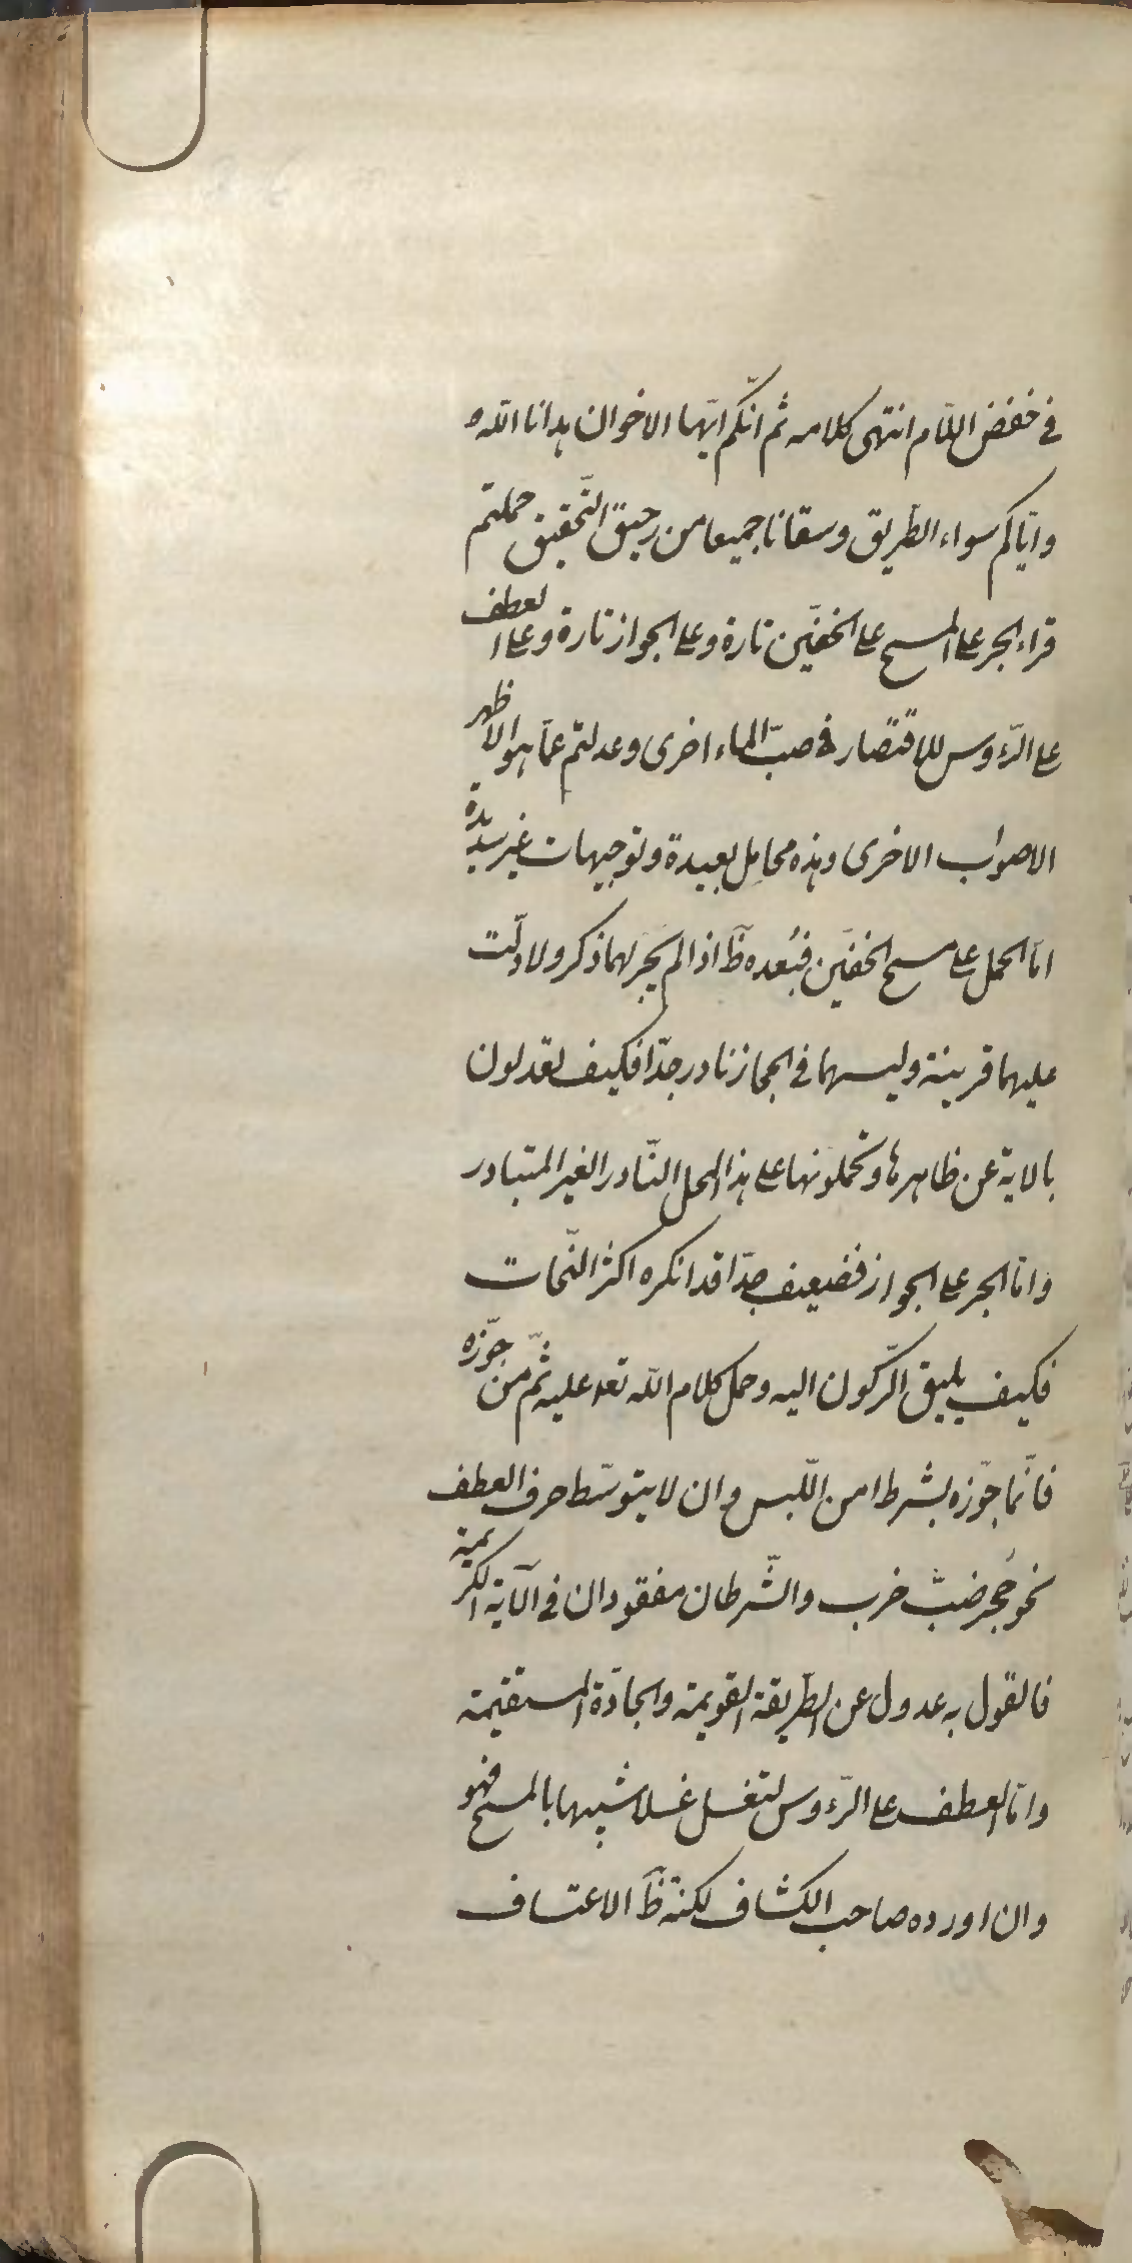 في خفض اللّام انتهى كلامه ثم انّكم ايّها الاخوان هدانا اللّه
وايّاكم سواء الطريق وسقانا جميعا من رحيق التّحقيق حملتم
قراء الجر على المسح على الخفّين تارة وعلى الجواز تارة وعلى العطف
على الرّءوس للاقتصار في صبّ الماء اخرى وعدلتم عمّا هو الاظهر
الاصواب الاخرى وهذه محامل بعيدة وتوجيهات غير سديدة
امّا الحمل على مسح الخفّين فبُعده ظّ اذ الم يجر لهما ذكر ولا دلّت
عليهما قرينة وليسهما في الحجاز نادر جدّا فكيف تعدلون
بالاية عن ظاهرها وتحملونها على هذا المحل النّادر الغير المتبادر
وامّا الجر على الجواز فضعيف جدّا قد انكره اكثر النّحات
فكيف يليق الرّكون اليه وحمل كلام اللّه تعه عليه ثمّ من جوّزه
فانّما جوّزه بشرط امن اللّبس وان لا يتوسّط حرف العطف
نحو حُجر ضبّ خرب والشّرطان مفقودان في الآية الكريمة
فالقول به عدول عن الطّريقة القويمة والجادّة المستقيمة
وامّا العطف على الرّءوس لتغسل غسلا شبيها بالمسح فهو
وان اورده صاحب الكشّاف لكنه ظّ الاعتساف